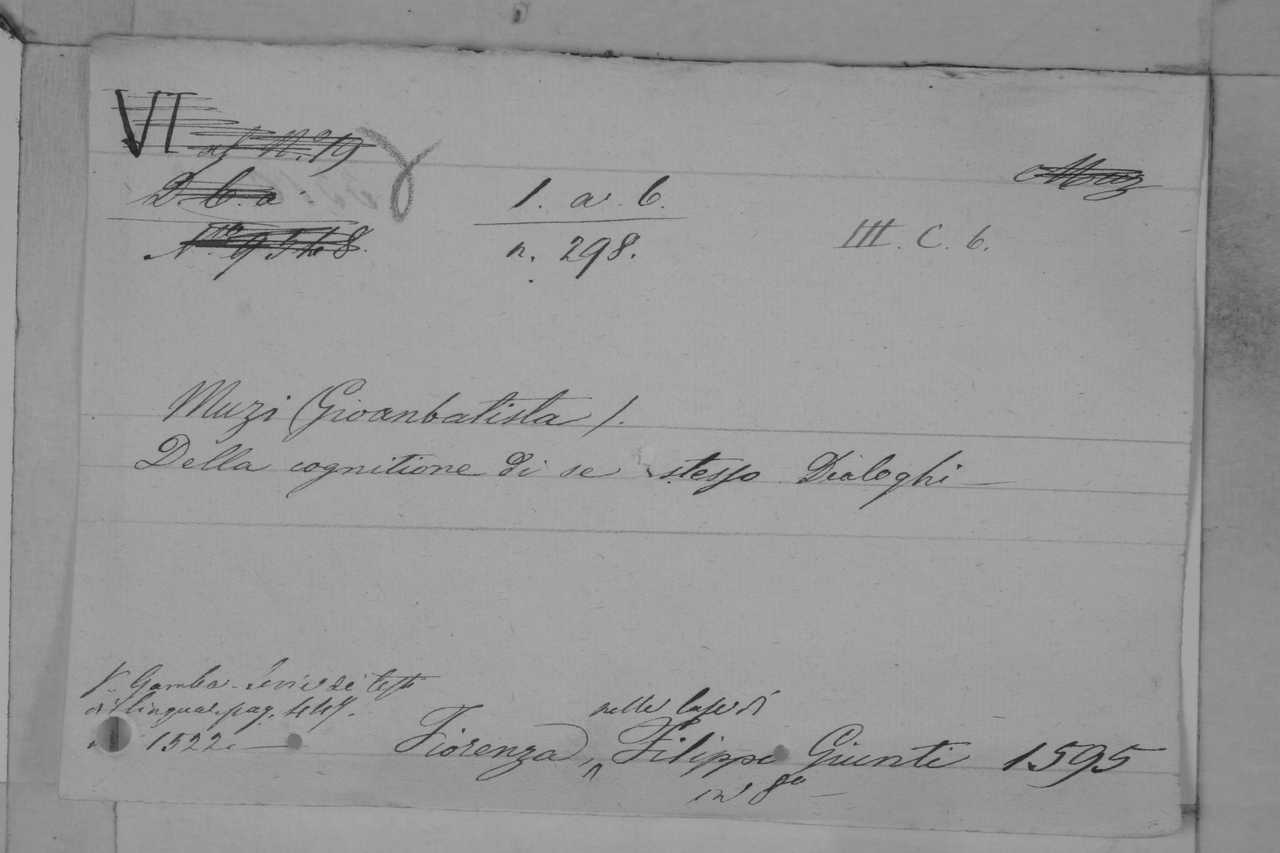 VI
al N.º 19
D. b. a
N.º 9548.
1. a. 6.
n. 298.
III. C. 6.
Muz
Muzi (Gioanbatista).
Della cognitione di se stesso Dialoghi —
V. Gamba - Serie dei testi
di lingua. pag. 447.
1522. —
nelle Case di
Fiorenza, Filippo Giunti 1595
in 8º —